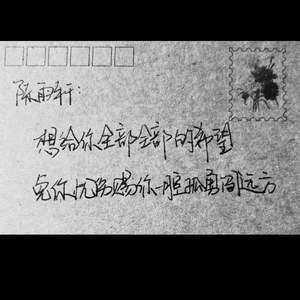 陈雨轩：
想给你全部全部的希望
免你忧伤赐你一腔孤勇闯远方